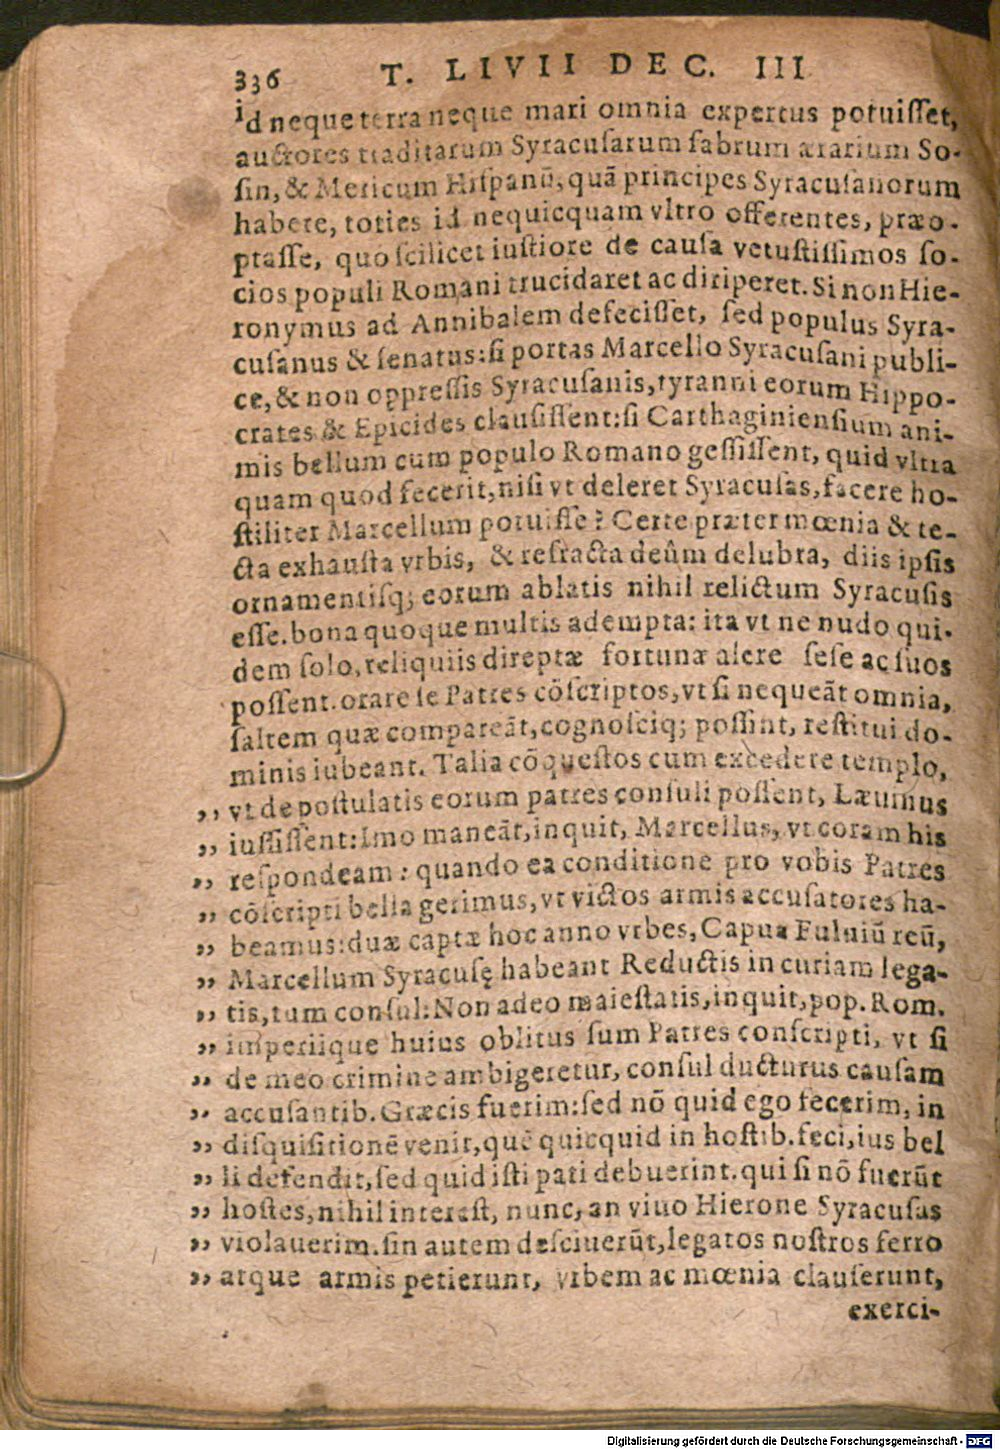 336 T. LIVII DEC. III
id neque terra neque mari omnia expertus potuiſſet,
auctores traditarum Syracuſarum fabrum ærarium So-
ſin, & Mericum Hiſpanū, quā principes Syracuſanorum
habere, toties id nequicquam vltro offerentes, præo-
ptaſſe, quo ſcilicet iuſtiore de cauſa vetuſtiſſimos ſo-
cios populi Romani trucidaret ac diriperet. Si non Hie-
ronymus ad Annibalem defeciſſet, ſed populus Syra-
cuſanus & ſenatus: ſi portas Marcello Syracuſani publi-
ce, & non oppreſſis Syracuſanis, tyranni eorum Hippo-
crates & Epicides clauſiſſent: ſi Carthaginienſium ani-
mis bellum cum populo Romano geſſiſſent, quid vltra
quam quod fecerit, niſi vt deleret Syracuſas, facere ho-
ſtiliter Marcellum potuiſſe? Certe præter mœnia & te-
cta exhauſta vrbis, & refracta deûm delubra, diis ipſis
ornamentiſq; eorum ablatis nihil relictum Syracuſis
eſſe. bona quoque multis adempta: ita vt ne nudo qui-
dem ſolo, reliquiis direptæ fortunæ alere ſeſe ac ſuos
poſſent. orare ſe Patres cōſcriptos, vt ſi nequeāt omnia,
ſaltem quæ compareāt, cognoſciq; poſſint, reſtitui do-
minis iubeant. Talia cōqueſtos cum excedere templo,
,, vt de poſtulatis eorum patres conſuli poſſent, Læuinus
,, iuſſiſſent: Imo maneāt, inquit, Marcellus, vt coram his
,, reſpondeam: quando ea conditione pro vobis Patres
,, cōſcripti bella gerimus, vt victos armis accuſatores ha-
,, beamus: duæ captæ hoc anno vrbes, Capua Fuluiū reū,
,, Marcellum Syracuſę habeant Reductis in curiam lega-
,, tis, tum conſul: Non adeo maieſtatis, inquit, pop. Rom.
,, imperiique huius oblitus ſum Patres conſcripti, vt ſi
,, de meo crimine ambigeretur, conſul ducturus cauſam
,, accuſantib. Græcis fuerim: ſed nō quid ego fecerim, in
,, diſquiſitionē venit, quē quicquid in hoſtib. feci, ius bel
,, li defendit, ſed quid iſti pati debuerint. qui ſi nō fuerūt
,, hoſtes, nihil intereſt, nunc, an viuo Hierone Syracuſas
,, violauerim. ſin autem deſciuerūt, legatos noſtros ferro
,, atque armis petierunt, vrbem ac mœnia clauſerunt,
exerci-
Digitalisierung gefördert durch die Deutsche Forschungsgemeinschaft - DFG